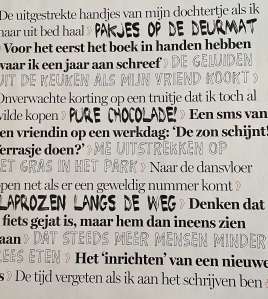 De uitgestrekte handjes van mijn dochtertje als ik
haar uit bed haal › PAKJES OP DE DEURMAT
› Voor het eerst het boek in handen hebben
waar ik een jaar aan schreef › DE GELUIDEN
UIT DE KEUKEN ALS MIJN VRIEND KOOKT ›
Onverwachte korting op een truitje dat ik toch al
wilde kopen › PURE CHOCOLADE! › Een sms van
een vriendin op een werkdag: ‘De zon schijnt!
Terrasje doen?’ › ME UITSTREKKEN OP
HET GRAS IN HET PARK › Naar de dansvloer
open net als er een geweldig nummer komt ›
KLAPROZEN LANGS DE WEG › Denken dat
fiets gejat is, maar hem dan ineens zien
aan › DAT STEEDS MEER MENSEN MINDER
VLEES ETEN › Het ‘inrichten’ van een nieuwe
› De tijd vergeten als ik aan het schrijven ben ›